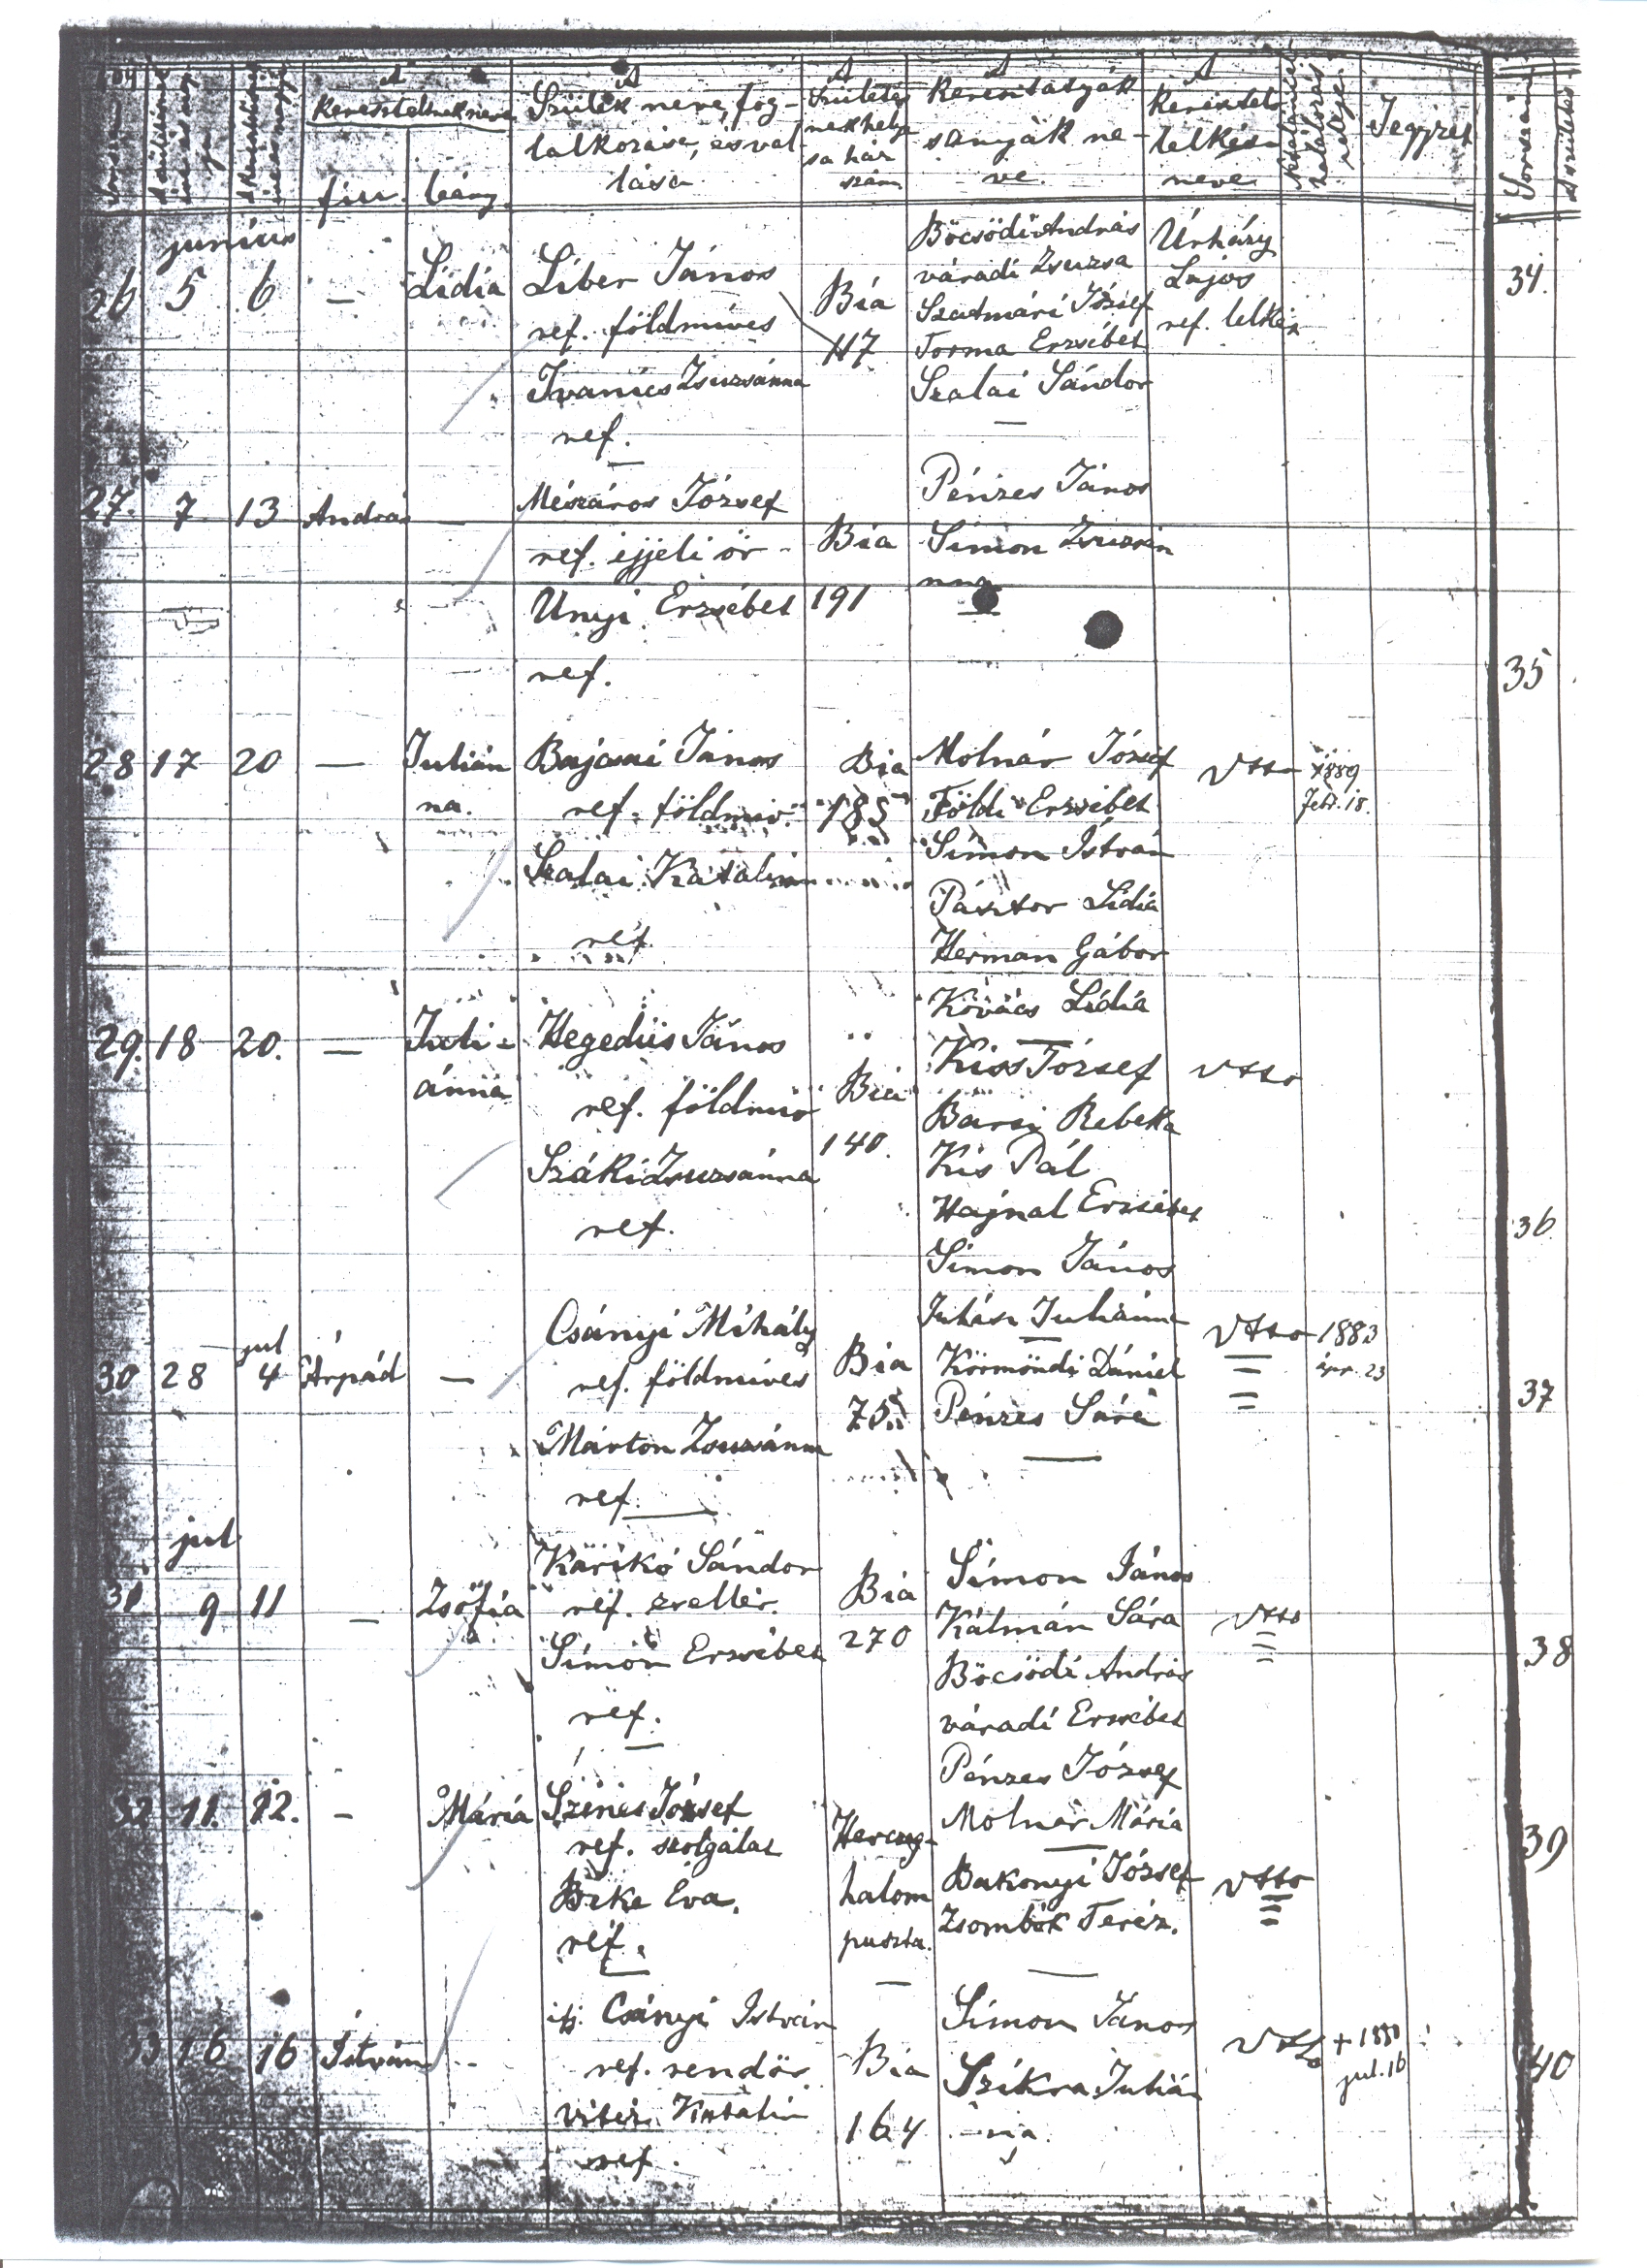 A kereszteltnek neve
fiu. leány.
A Szülék neve, fog-
lalkozása, és val-
lása
A Születés-
nek helye
s a ház
szám
A Keresztatyák
s anyák ne-
ve.
A Keresztelő
lelkész
neve
Jegyzet
junius
26 5 6 — Lídia
Líber János
ref. földmíves
Ivanics Zsuzsánna
ref.
Bia
117
Böcsödi András
váradi Zsuzsa
Szatmári József
Torma Erzsébet
Szalai Sándor
—
Úrházy
Lajos
ref. lelkész
34.
27. 7. 13 András —
Mészáros József
ref. éjjeli őr
Unyi Erzsébet
ref.
Bia
191
Pénzes János
Simon Zsuzsán
nna
35
28 17 20 — Julián
na.
Bajcsai János
ref. földmiv.
Szalai Katalin
ref.
Bia
185
Molnár József
Földi Erzsébet
Simon István
Pásztor Lidia
Herman Gábor
Kovács Lídia
Vtso
1889
febr. 18.
29. 18 20. — Juli-
ánna
Hegedüs János
ref. földmiv
Száki Zsuzsánna
ref.
Bia
140.
Kiss József
Barsi Rebeka
Kis Pál
Hajnal Erzsébet
Simon János
Juhász Juliánna
Vtso
36
30 28 jul
4 Árpád —
Csányi Mihály
ref. földmíves
Márton Zsuzsánna
ref.
Bia
75.
Körmöndi Dániel
Pénzes Sára
Vtso
1883
ápr. 23
37
jul
31 9 11 — Zsófia
Karikó Sándor
ref. zsellér.
Simon Erzsébet
ref.
Bia
270
Simon János
Kálmán Sára
Böcsödi András
váradi Erzsébet
Pénzes József
Molnar Mária
Vtso
38
32 11. 12. — Mária
Szénes József
ref. szolgálat
Beke Éva.
ref.
Herczeg-
halom
puszta.
Bakonyi József
Zsombók Teréz.
Vtso
39
33 16 16 István --
ifj. Csányi István
ref. rendőr
vitéz Katalin
ref.
Bia
164
Simon János
Szikra Julián
-na.
Vtso
+ 1880
jul. 16
40